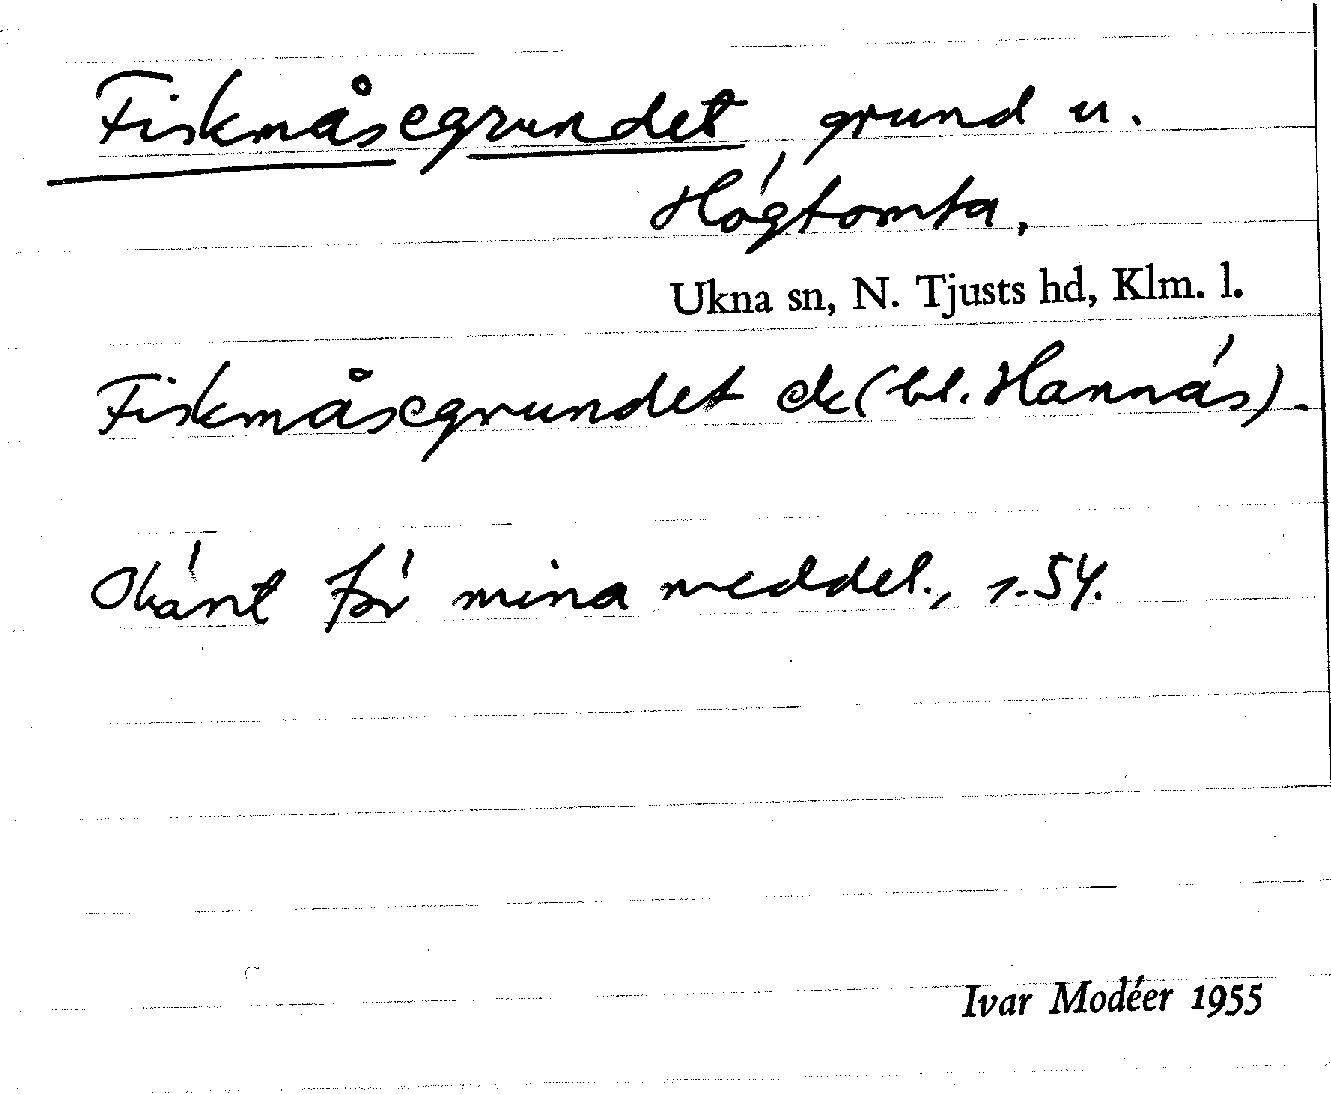 Fiskmåsegrundet grund u.
Högtomta,
Ukna sn, N. Tjusts hd, Klm. l.
Fiskmåsegrundet ek (bl. Hannäs).
Okänt för mina meddel., s. 54.
Ivar Modéer 1955